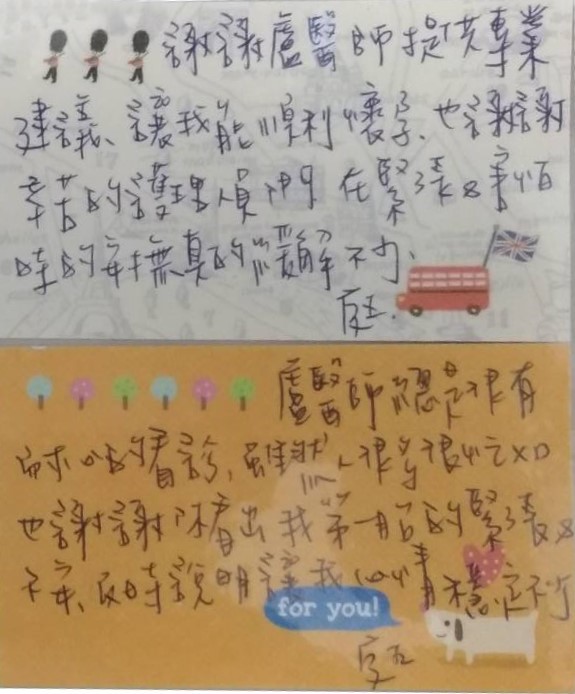 謝謝盧醫師提供專業
建議、讓我能順利懷孕、也謝謝
辛苦的護理人員們在緊張&害怕
時的安撫真的緩解不少、
庭.
盧醫師總是很有
耐心的看診,雖然人很多很忙XD
也謝謝你看出我第一胎的緊張&
不安、及時說明讓我心情穩定不少
for you!
庭